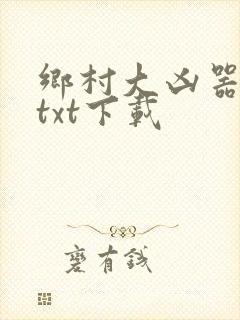 鄉村大凶器
txt下載
寠有錢